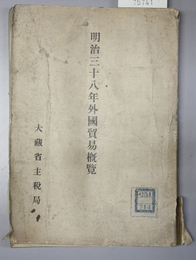 明治三十八年外國貿易概覽
大藏省主税局